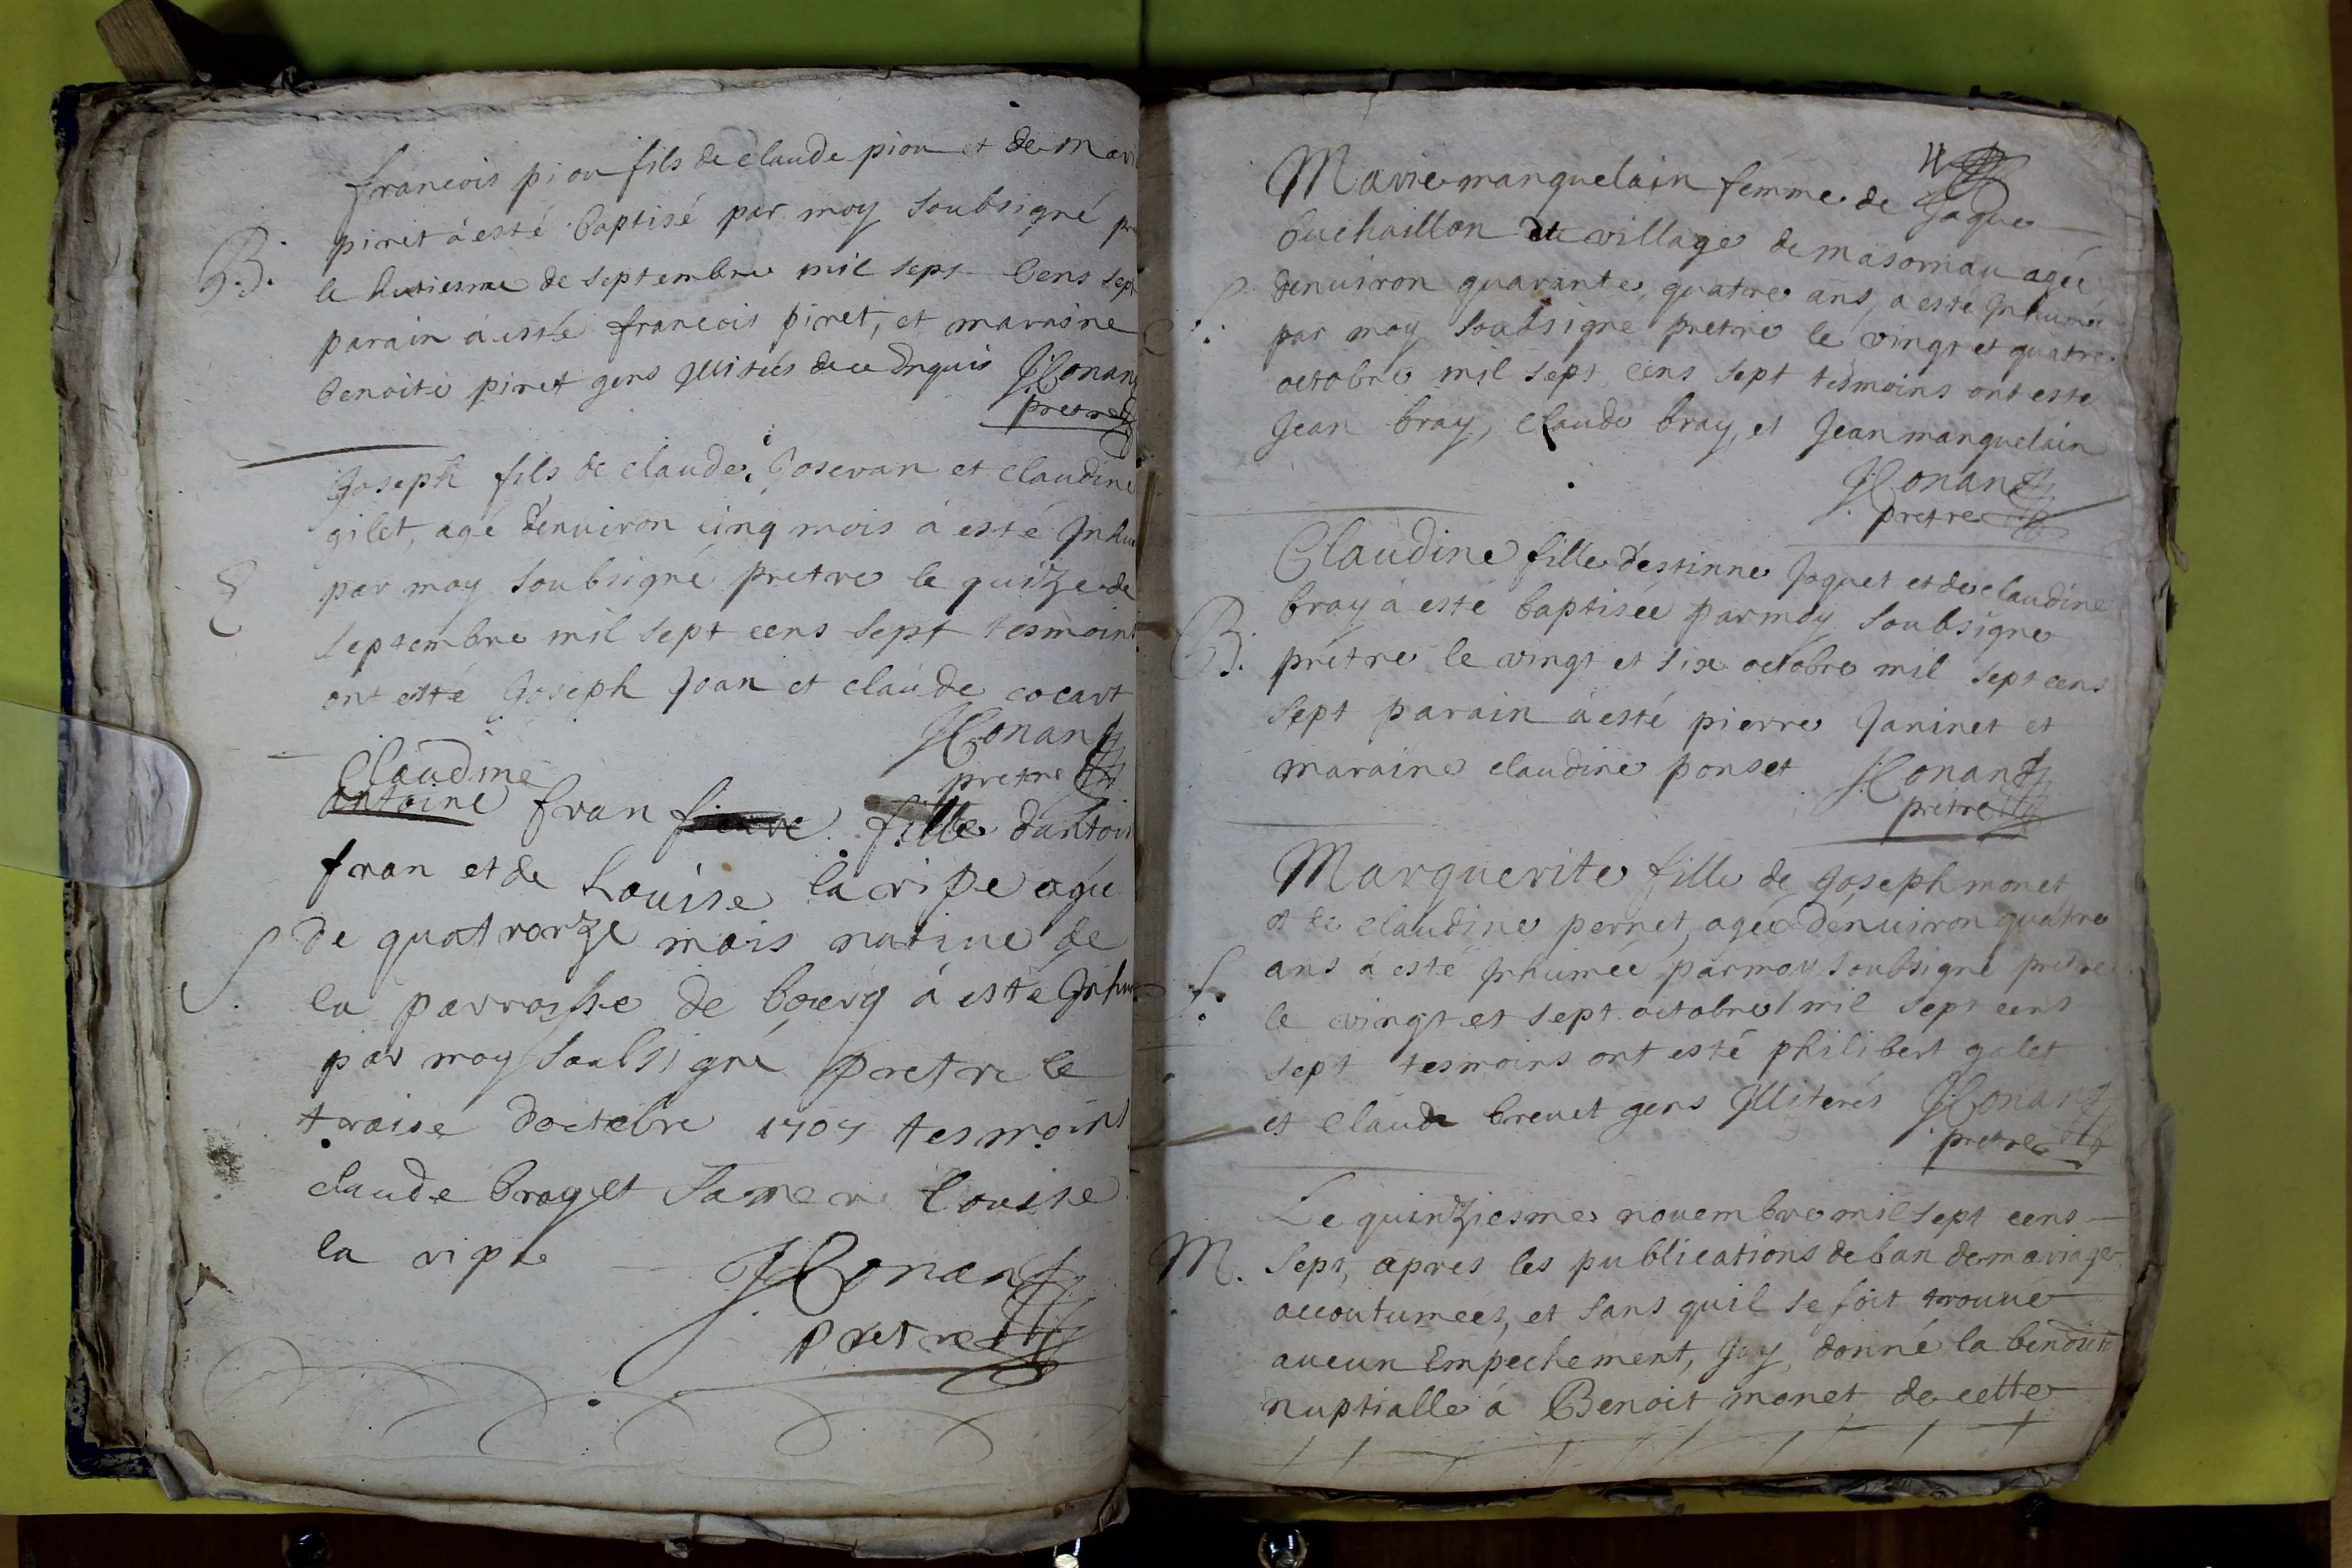 francois piou fils de claude piou et de mari
B. piret à esté baptisé par moy soubsigné pre
le huitiesme de septembre mil sept Cens sept
parain à esté francois piret, et maraine
benoite piret gens Illiterés de ce Enquis JConand
pretre
Joseph fils de claude Joseran et claudine
gilet, agé denuiron cinq mois à esté Inhu
S par moy soubsigné pretre le quize de
septembre mil sept cens sept tesmoint
ont esté Joseph Joan et claude cocart
JConand
pretre
Claudine
antoine fran fille dantoin
fran et de Louise la vipe agée
S. de quatrorze mois natiue de
la parroisse de bourg à esté Inhum
par moy soubsigné pretre le
traise doctobre 1707 tesmoint
claude bray et sa mere louise
la vipe JConand
pretre
Marie manguelain femme de Jaque
buchaillon du village de masornau agée
S. denuiron quarante, quatre ans, a esté Inhumée
par moy soubsigné pretre le vingt et quatre
octobre mil sept cens sept tesmoins ont esté
Jean bray, claude bray, et Jean manguelain
JConand
pretre
Claudine fille destinne Jaquet et de claudine
bray à esté baptisée par moy soubsigné
B. prétre le vingt et six octobre mil sept cens
sept parain à esté pierre Janinet et
maraine claudine ponset JConand
prétre
Marguerite fille de Joseph monet
et de claudine pernet, agée denuiron quatre
S. ans à esté Inhumée par moy soubsigné prétre
le vingt et sept octobre mil sept cens
sept tesmoins ont esté philibert galet
et Claude breuet gens Illiterés JConand
pretre
Le quinziesme nouembre mil sept cens
M. sept, apres les publications de ban de mariage
accoutumées, et sans quil se soit trouué
aucun Empechement, Jay donné la benedict
nuptialle à Benoit monet de cette